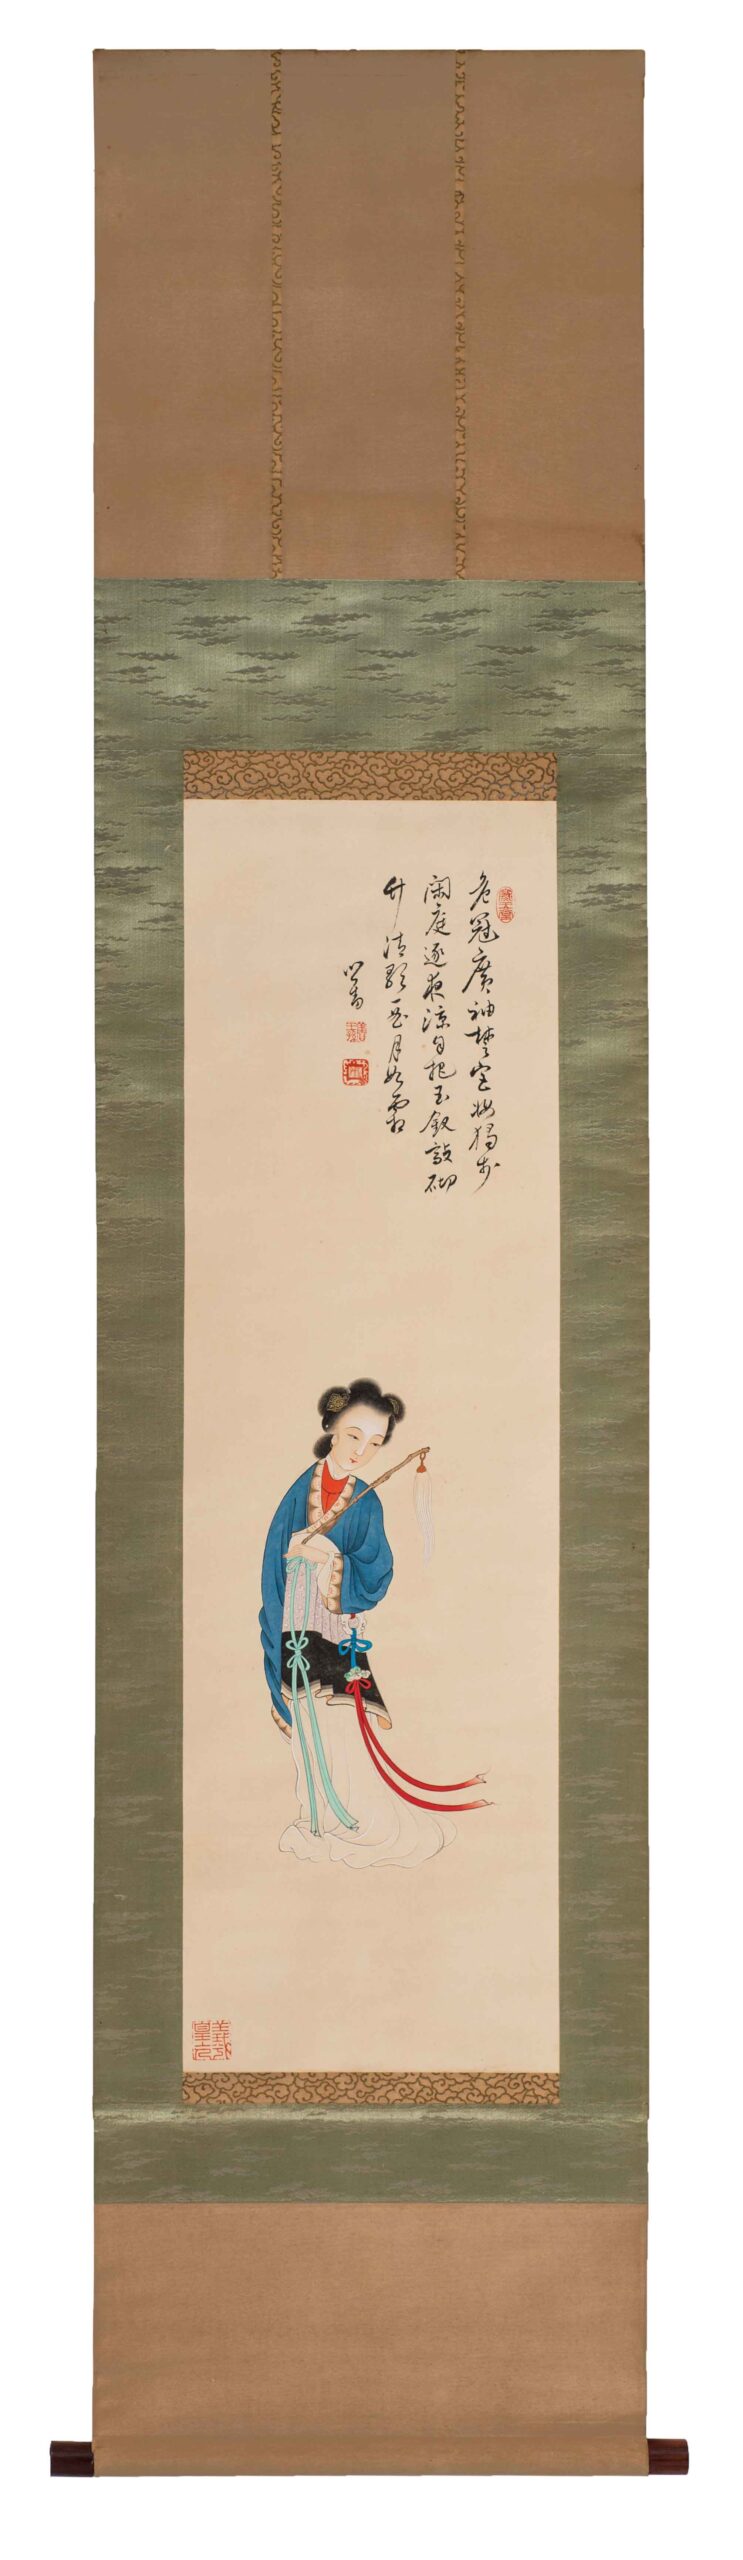 危冠廣袖楚宮妝獨步
閑庭逐夜涼自把玉釵敲砌
竹清歌一曲月如霜
心畬
羲皇上人